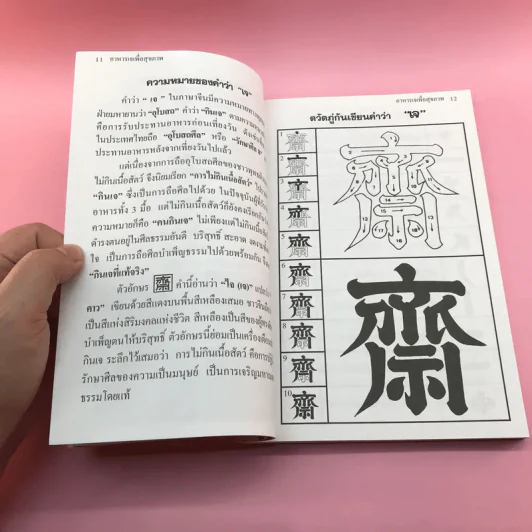 11 อาหารเจเพื่อสุขภาพ
ความหมายของคำว่า "เจ"
คำว่า "เจ" ในภาษาจีนมีความหมายทาง
ฝ่ายมหายานว่า "อุโบสถ" คำว่า "กินเจ" ตามความ
คือการรับประทานอาหารก่อนเที่ยงวัน
ในประเทศไทยถือ "อุโบสถศีล" หรือ "รักษาศีล
ประทานอาหารหลังจากเที่ยงวันไปแล้ว
แต่เนื่องจากการถืออุโบสถศีลของชาวพุทธ
ไม่กินเนื้อสัตว์ จึงนิยมเรียก "การไม่กินเนื้อสัตว์"
"กินเจ" ซึ่งเป็นการถือศีลไปด้วย ในปัจจุบันผู้
อาหารทั้ง 3 มื้อ แต่ไม่กินเนื้อสัตว์ก็ยังคงเรียก
ความหมายก็คือ "คนกินเจ" ไม่เพียงแต่ไม่กินเนื้อ
ดำรงตนอยู่ในศีลธรรมอันดี บริสุทธิ์ สะอาด
ใจ เป็นการถือศีลบำเพ็ญธรรมไปด้วยพร้อมกัน
"กินเจที่แท้จริง"
ตัวอักษร 齋 คำนี้อ่านว่า "ไจ (เจ)"
คาว" เขียนด้วยสีแดงบนพื้นสีเหลืองเสมอ ชาวจีน
เป็นสีแห่งสิริมงคลแห่งชีวิต สีเหลืองเป็นสีของผู้
บำเพ็ญตนให้บริสุทธิ์ ตัวอักษรนี้ย่อมเป็นเครื่อง
กินเจ ระลึกไว้เสมอว่า การไม่กินเนื้อสัตว์ คือการ
รักษาศีลของความเป็นมนุษย์ เป็นการเจริญ
ธรรมโดยแท้
อาหารเจเพื่อสุขภาพ 12
ตวัดภู่กันเขียนคำว่า "เจ"
1 齋
2 齋
3 齋
4 齋
5 齋
6 齋
7 齋
8 齋
9 齋
10 齋
齋
齋